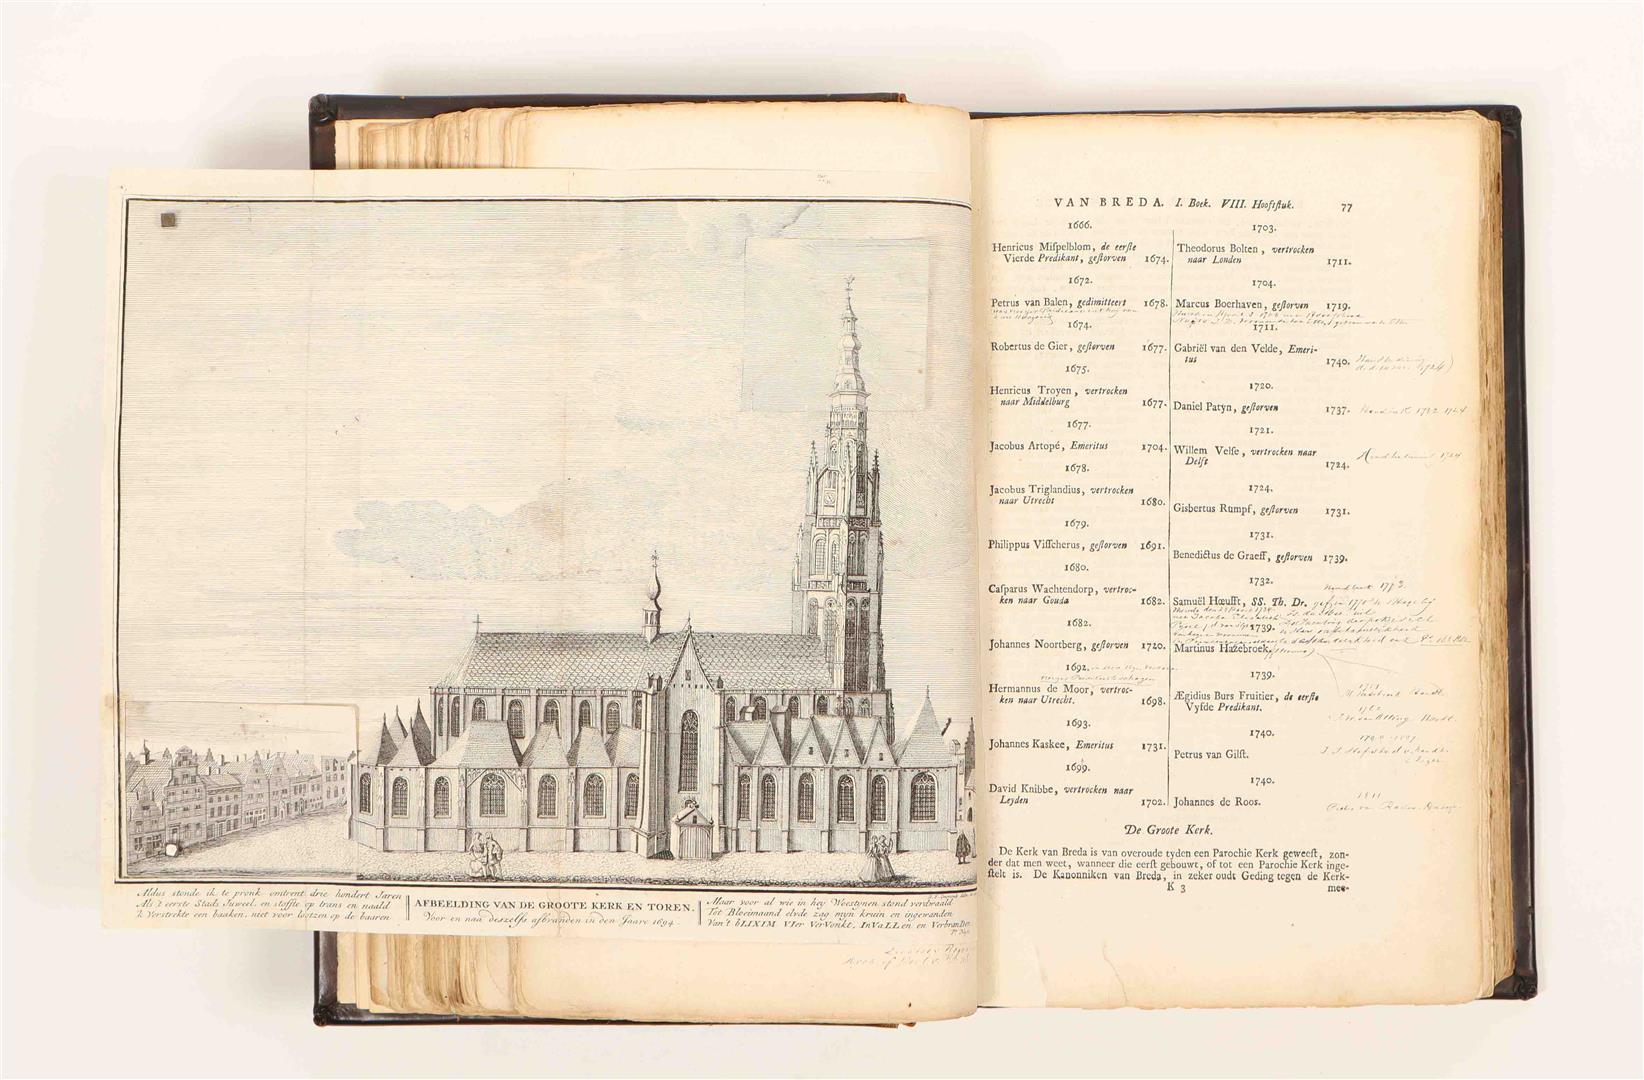 Aldus stonde ik te pronk omtrent drie hondert Jaren
Als 't eerste Stads Juweel, en stofte op trans en naald
'k Verstrekte een baaken, niet voor lootzen op de baaren
AFBEELDING VAN DE GROOTE KERK EN TOREN,
Voor en naa deszelfs afbranden in den Jaare 1694.
Maar voor al wie in hey Woestynen stond verdwaald
Tot Bloeimaand elvde zag myn kruin en ingewanden
Van't bLIXIM VIer VerVonkt, InVaLLen en VerbranDen
VAN BREDA. I. Boek. VIII. Hooftstuk. 77
1666.
Henricus Miſpelblom, de eerſte
Vierde Predikant, geſtorven 1674.
1672.
Petrus van Balen, gedimitteert 1678.
1674.
Robertus de Gier, geſtorven 1677.
1675.
Henricus Troyen, vertrocken
naar Middelburg 1677.
1677.
Jacobus Artopé, Emeritus 1704.
1678.
Jacobus Triglandius, vertrocken
naar Utrecht 1680.
1679.
Philippus Viſſcherus, geſtorven 1691.
1680.
Caſparus Wachtendorp, vertroc-
ken naar Gouda 1682.
1682.
Johannes Noortberg, geſtorven 1720.
1692.
Hermannus de Moor, vertroc-
ken naar Utrecht. 1698.
1693.
Johannes Kaskee, Emeritus 1731.
1699.
David Knibbe, vertrocken naar
Leyden 1702.
1703.
Theodorus Bolten, vertrocken
naar Londen 1711.
1704.
Marcus Boerhaven, geſtorven 1719.
1711.
Gabriël van den Velde, Emeri-
tus 1740.
1720.
Daniel Patyn, geſtorven 1737.
1721.
Willem Velſe, vertrocken naar
Delft 1724.
1724.
Gisbertus Rumpf, geſtorven 1731.
1731.
Benedictus de Graeff, geſtorven 1739.
1732.
Samuël Hœufft, SS. Th. Dr.
1739.
Martinus Hazebroek.
1739.
Ægidius Burs Fruitier, de eerſte
Vyfde Predikant.
1740.
Petrus van Gilſt.
1740.
Johannes de Roos.
De Groote Kerk.
De Kerk van Breda is van overoude tyden een Parochie Kerk geweeſt, zon-
der dat men weet, wanneer die eerſt gebouwt, of tot een Parochie Kerk inge-
ſtelt is. De Kanonniken van Breda, in zeker oudt Geding tegen de Kerk-
K 3 mee-